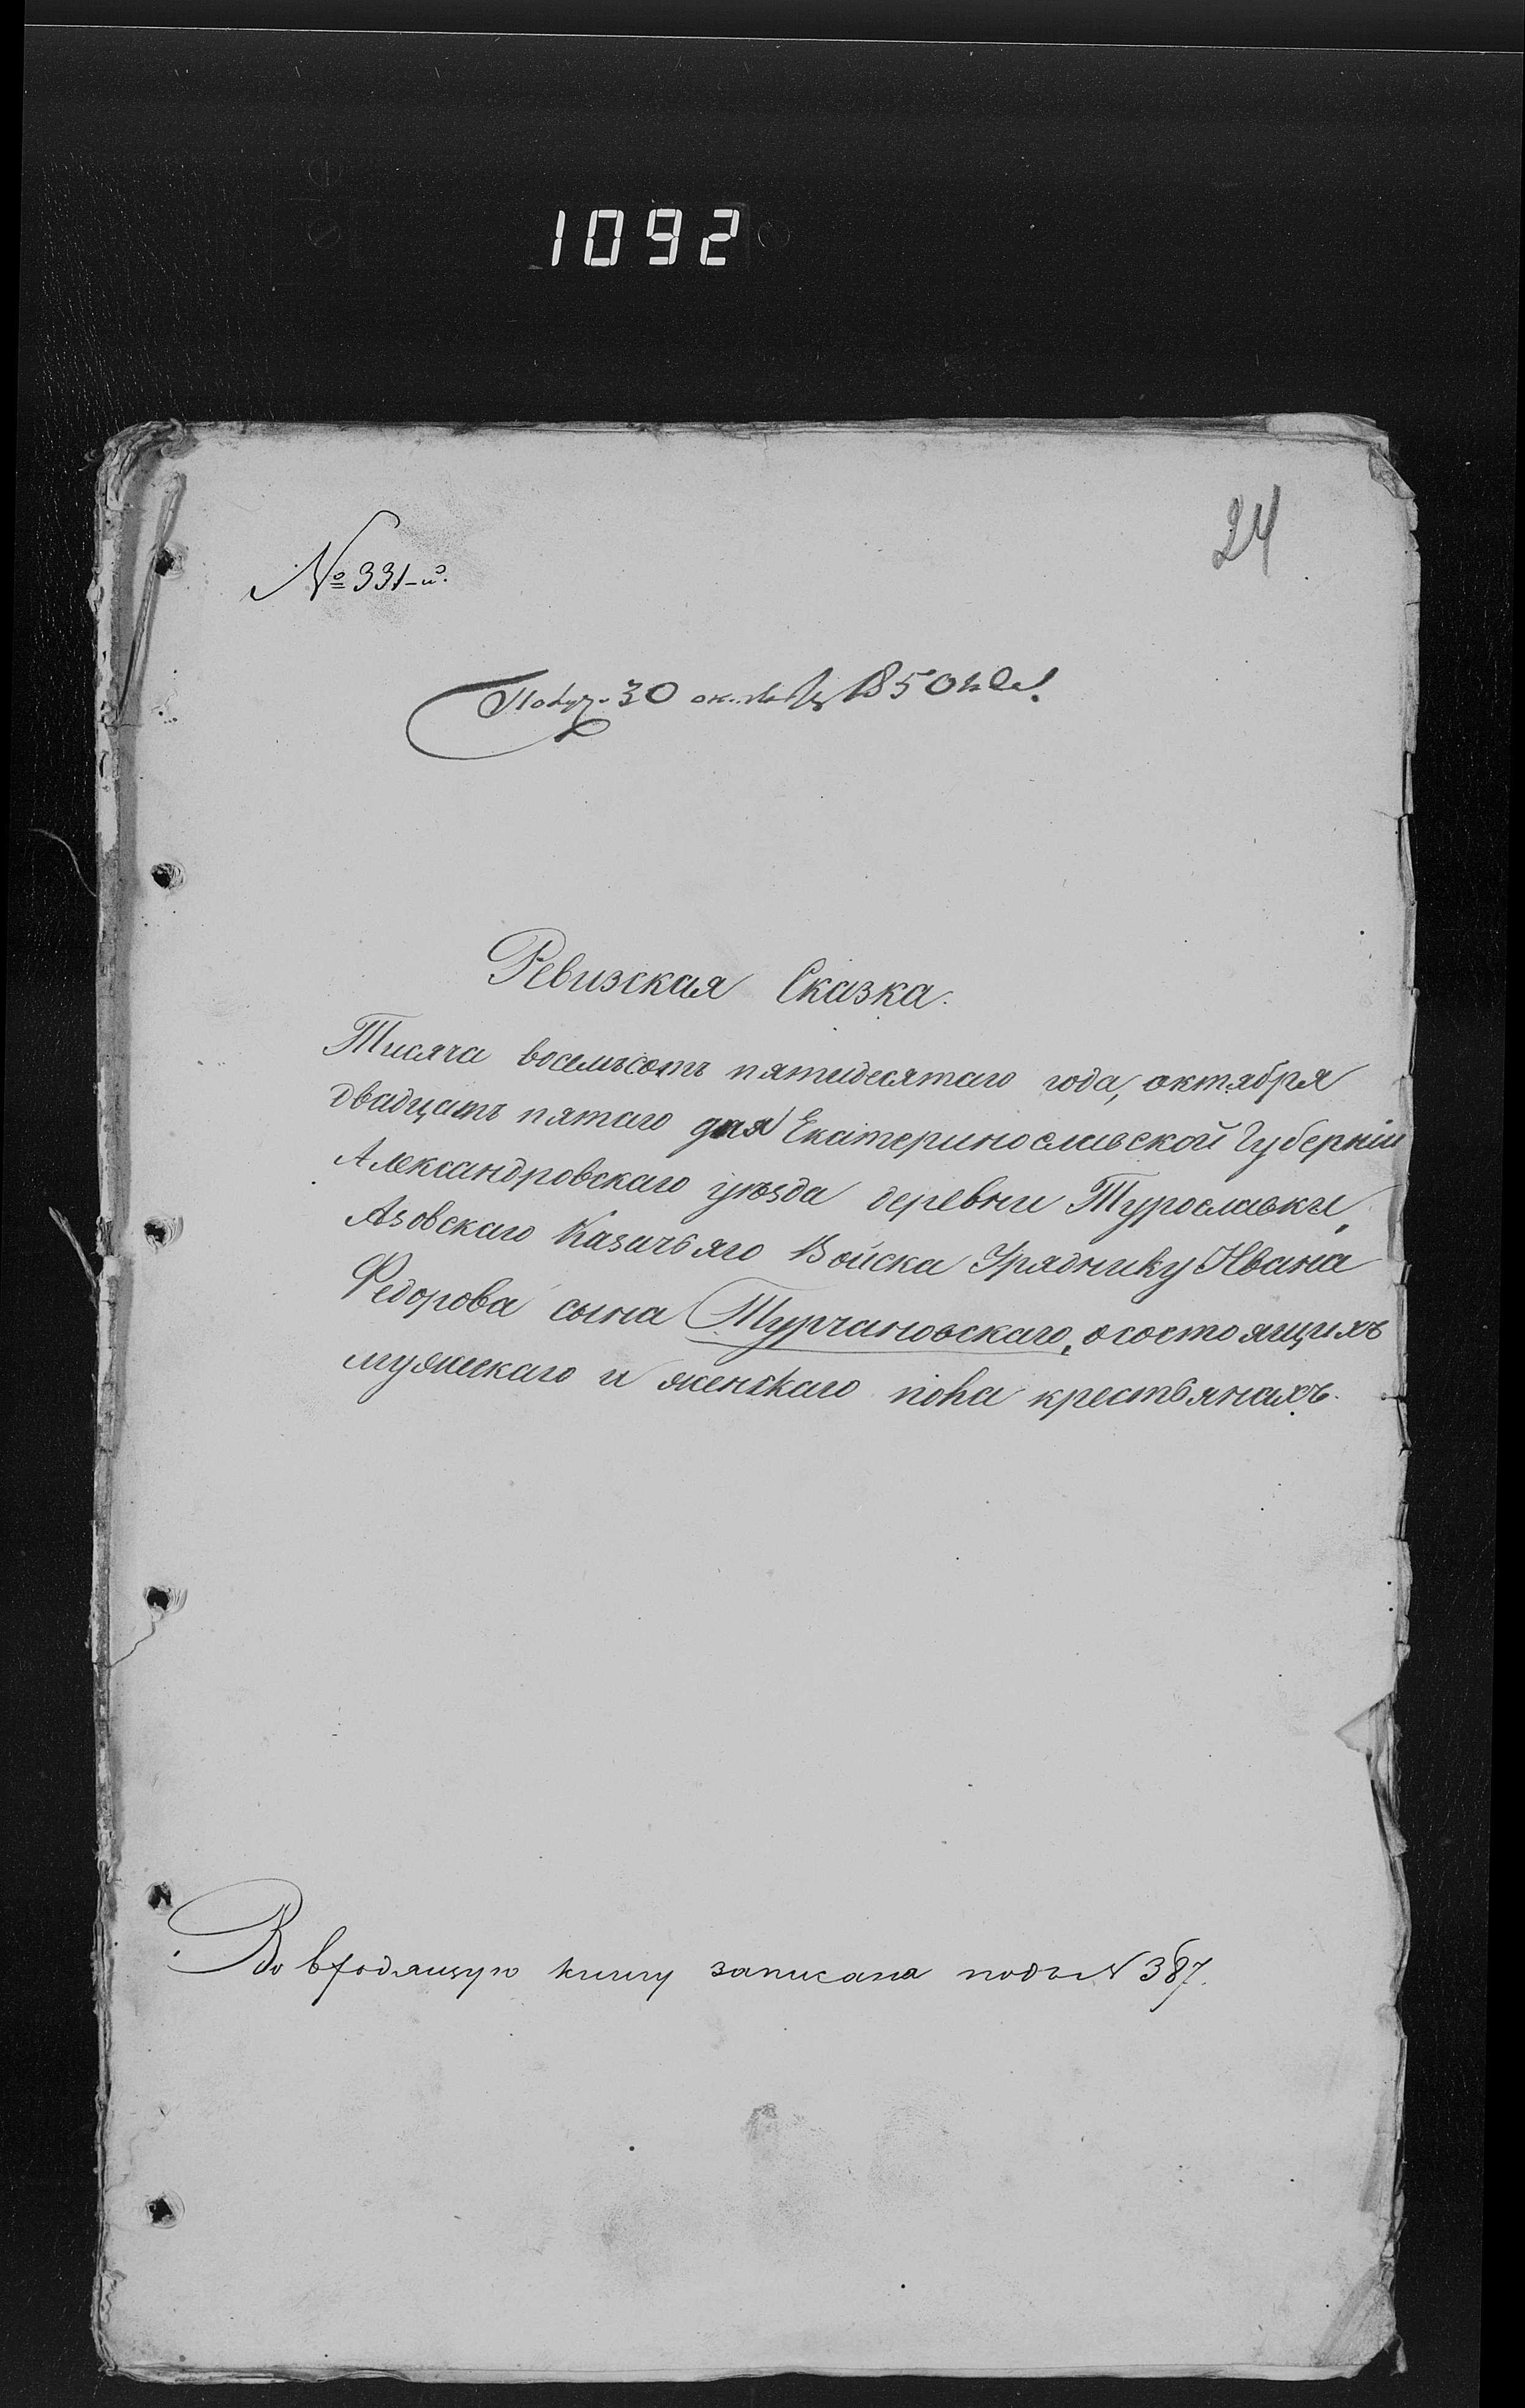 1092
24
№ 331-й.
Получ. 30 октября 1850 года.
Ревизская Сказка.
Тисяча восемьсотъ пятидесятаго года, октября
двадцать пятаго дня Екатеринославской Губерніи
Александровскаго уѣзда деревни Турославки,
Азовскаго Казачьяго Войска Уряднику Ивана
Федорова сына Турчановскаго, о состоящихъ
мужескаго и женскаго пола крестьянахъ.
Во входящую книгу записана подъ N 387.